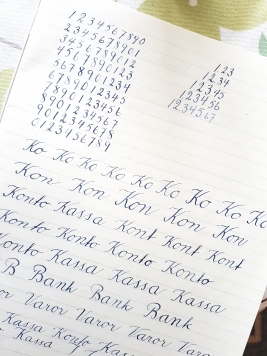 1234567890
2345678901
3456789012
4567890123
5678901234
6789012345
7890123456
8901234567
9012345678
0123456789
123
1234
12345
123456
1234567
Ko Ko Ko Ko Ko Ko Ko Ko Ko
Kon Kon Kon Kon Kon
Konto Kassa Kont Kont Kont
Konto Konto Konto Konto
Konto Kassa Kassa Kassa
B Bank Bank Bank
Varor Varor Varor Varor
Kassa Konto Kassa
Kassa